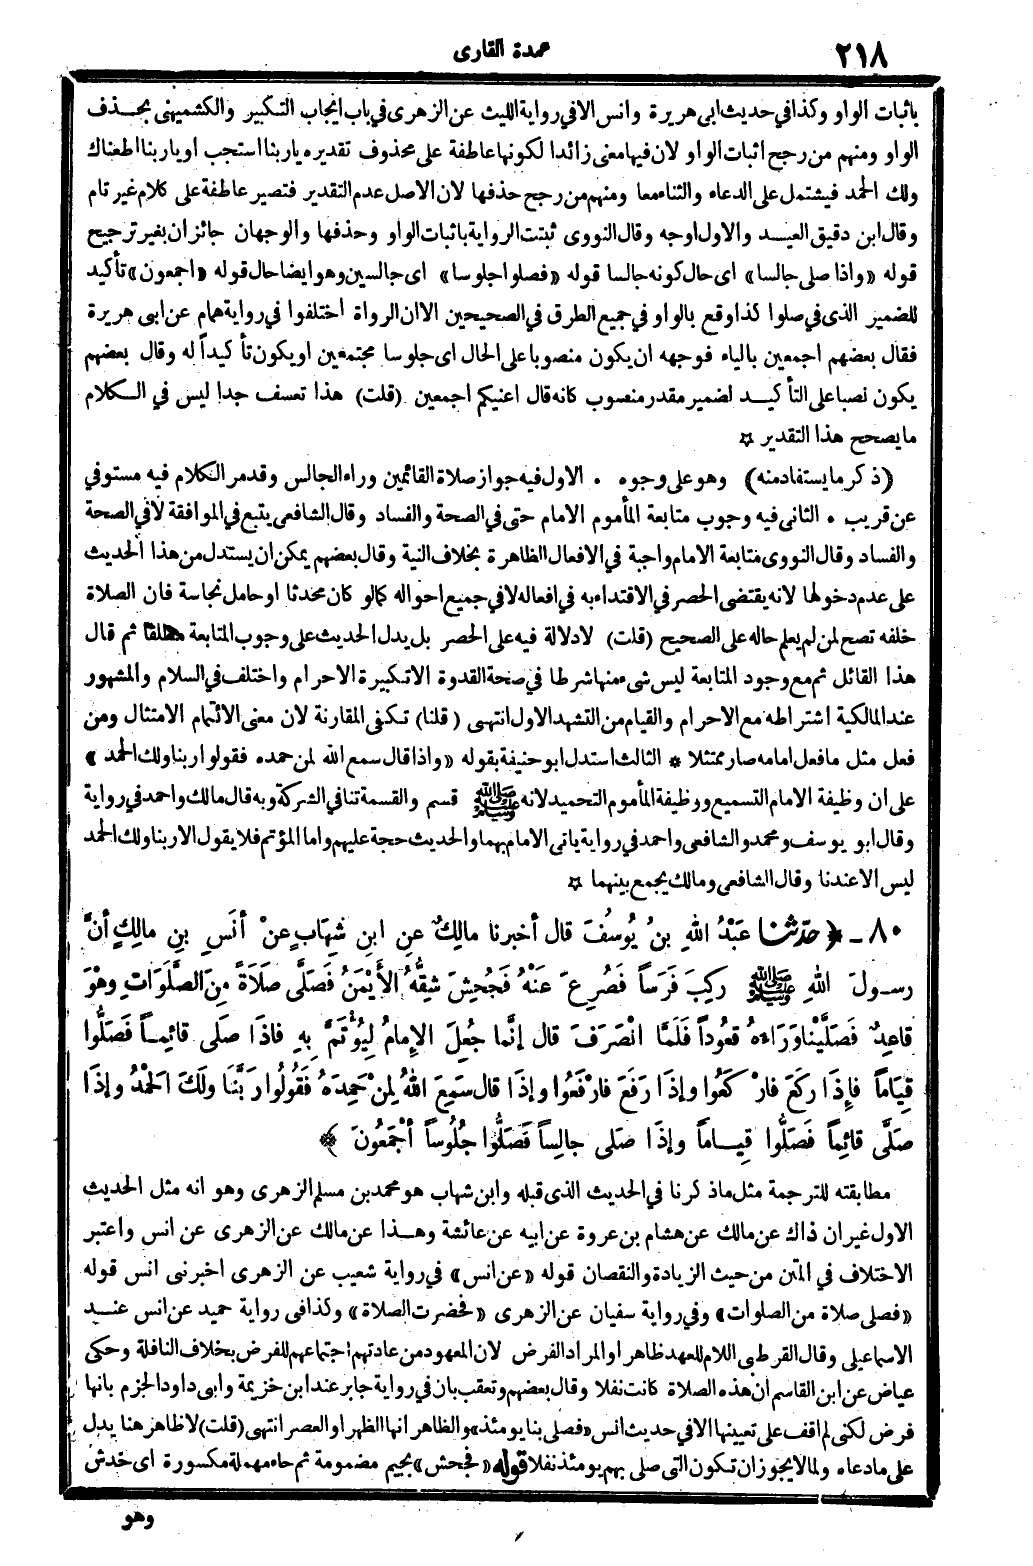 ٢١٨
عمدة القارى
باثبات الواو وكذا في حديث ابى هريرة وانس الا في رواية الليث عن الزهرى في باب ايجاب التكبير والكشميهنى بحذف
الواو ومنهم من رجح اثبات الواو لان فيها معنى زائدا لكونها عاطفة على محذوف تقديره ياربنا استجب او ياربنا اطعناك
ولك الحمد فيشتمل على الدعاء والثناء معا ومنهم من رجح حذفها لان الاصل عدم التقدير فتصير عاطفة على كلام غير تام
وقال ابن دقيق العيد والاول اوجه وقال النووى ثبتت الرواية باثبات الواو وحذفها والوجهان جائزان بغير ترجيح
قوله «واذا صلى جالسا» اى حال كونه جالسا قوله «فصلوا جلوسا» اى جالسين وهو ايضا حال قوله «اجمعون» تأكيد
للضمير الذى في صلوا كذا وقع بالواو في جميع الطرق في الصحيحين الا ان الرواة اختلفوا في رواية همام عن ابى هريرة
فقال بعضهم اجمعين بالياء فوجهه ان يكون منصوبا على الحال اى جلوسا مجتمعين او يكون تأكيداً له وقال بعضهم
يكون نصبا على التأكيد لضمير مقدر منصوب كانه قال اعنيكم اجمعين (قلت) هذا تعسف جدا ليس في الكلام
ما يصحح هذا التقدير ☆
(ذكر ما يستفاد منه) وهو على وجوه . الاول فيه جواز صلاة القائمين وراء الجالس وقد مر الكلام فيه مستوفي
عن قريب . الثانى فيه وجوب متابعة المأموم الامام حتى في الصحة والفساد وقال الشافعى يتبع في الموافقة لا في الصحة
والفساد وقال النووى متابعة الامام واجبة في الافعال الظاهرة بخلاف النية وقال بعضهم يمكن ان يستدل من هذا الحديث
على عدم دخولها لانه يقتضى الحصر في الاقتداء به في افعاله لا في جميع احواله كما لو كان محدثا او حامل نجاسة فان الصلاة
خلفه تصح لمن لم يعلم حاله على الصحيح (قلت) لا دلالة فيه على الحصر بل يدل الحديث على وجوب المتابعة مطلقا ثم قال
هذا القائل ثم مع وجود المتابعة ليس شىء منها شرطا في صحة القدوة الا تكبيرة الاحرام واختلف في السلام والمشهور
عند المالكية اشتراطه مع الاحرام والقيام من التشهد الاول انتهى (قلنا) تكفى المقارنة لان معنى الائتمام الامتثال ومن
فعل مثل ما فعل امامه صار ممتثلا * الثالث استدل ابو حنيفة بقوله «واذا قال سمع الله لمن حمده فقولوا ربنا ولك الحمد»
على ان وظيفة الامام التسميع ووظيفة المأموم التحميد لانه ﷺ قسم والقسمة تنافي الشركة وبه قال مالك واحمد في رواية
وقال ابو يوسف ومحمد والشافعى واحمد في رواية يأتى الامام بهما والحديث حجة عليهم واما المؤتم فلا يقول الا ربنا ولك الحمد
ليس الا عندنا وقال الشافعى ومالك يجمع بينهما ☆
٨٠ - ﴿حدّثنا عَبْدُ اللهِ بنُ يُوسُفَ قال أخبرنا مالِكٌ عنِ ابنِ شِهابٍ عنْ أنَسِ بنِ مالِكٍ أنَّ
رسولَ اللهِ ﷺ ركِبَ فَرَساً فَصُرِعَ عَنْهُ فَجُحِشَ شِقُّهُ الأيْمَنُ فَصَلَّى صَلَاةً مِنَ الصَّلَوَاتِ وهْوَ
قاعِدٌ فَصَلَّيْنا وَرَاءَهُ قعُوداً فَلَمَّا انْصَرَفَ قال إنَّما جُعِلَ الإمامُ لِيُؤْتَمَّ بِهِ فاذَا صَلى قائِماً فَصَلُّوا
قِيَاماً فإِذَا ركَعَ فارْكَعُوا وإذَا رفَعَ فارْفَعُوا وإذَا قال سَمِعَ اللهُ لِمنْ حَمِدَهُ فَقُولُوا رَبَّنَا ولَكَ الحَمْدُ وإذَا
صَلَّى قائِماً فَصَلُّوا قِيَاماً وإذَا صَلى جالِساً فَصَلُّوا جُلُوساً أجْمَعُونَ﴾
مطابقته للترجمة مثل ماذكرنا في الحديث الذى قبله وابن شهاب هو محمد بن مسلم الزهرى وهو انه مثل الحديث
الاول غير ان ذاك عن مالك عن هشام بن عروة عن ابيه عن عائشة وهذا عن مالك عن الزهرى عن انس واعتبر
الاختلاف في المتن من حيث الزيادة والنقصان قوله «عن انس» في رواية شعيب عن الزهرى اخبرنى انس قوله
«فصلى صلاة من الصلوات» وفي رواية سفيان عن الزهرى «فحضرت الصلاة» وكذا في رواية حميد عن انس عند
الاسماعيلى وقال القرطبى اللام للعهد ظاهرا والمراد الفرض لان المعهود من عادتهم اجتماعهم للفرض بخلاف النافلة وحكى
عياض عن ابن القاسم ان هذه الصلاة كانت نفلا وقال بعضهم وتعقب بان في رواية جابر عند ابن خزيمة وابى داود الجزم بانها
فرض لكنى لم اقف على تعيينها الا في حديث انس «فصلى بنا يومئذ» والظاهر انها الظهر او العصر انتهى (قلت) لا ظاهر هنا يدل
على مادعاه ولما لا يجوز ان تكون التى صلى بهم يومئذ نفلا قوله «فجحش» بجيم مضمومة ثم حاء مهملة مكسورة اى خدش
وهو